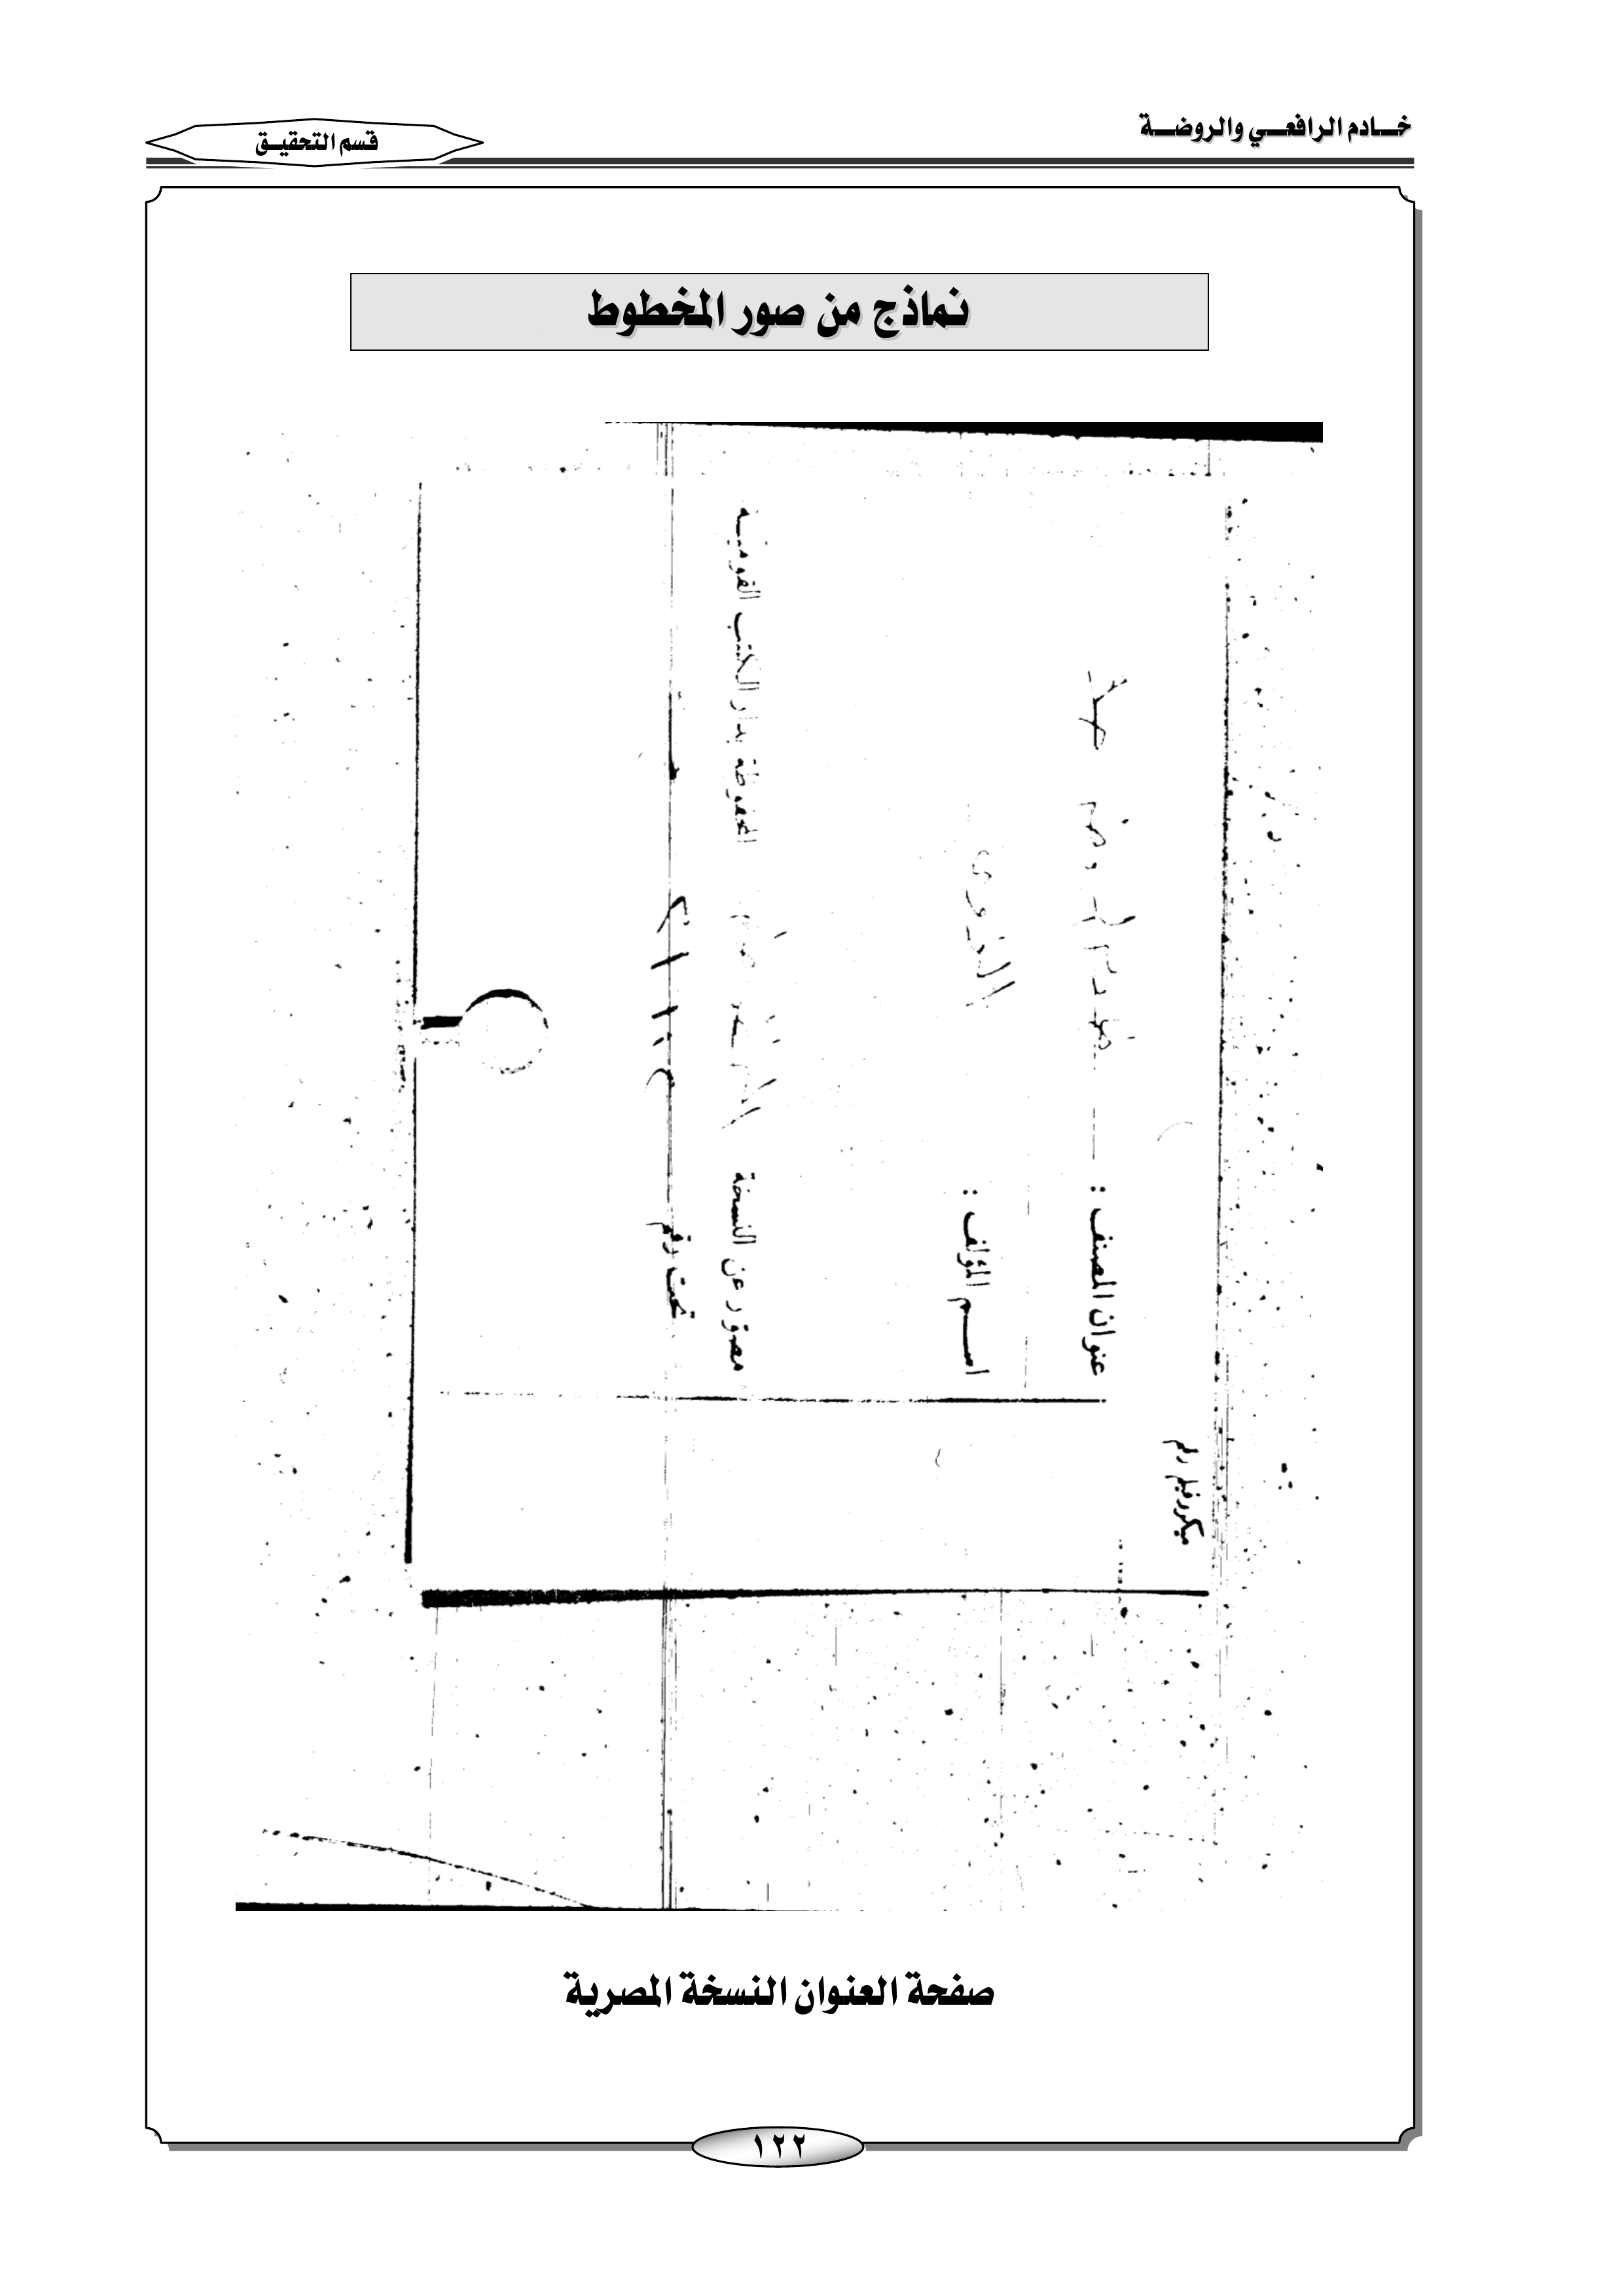 خـــادم الرافعـــي والروضـــة
قسم التحقيـق
نماذج من صور المخطوط
ميكروفيلم رقم
عنوان المصنف : خادم الروضة
اسـم المؤلف :
مصور عن النسخة المحفوظة بدار الكتب القومية
تحت رقم
صفحة العنوان النسخة المصرية
١٢٢